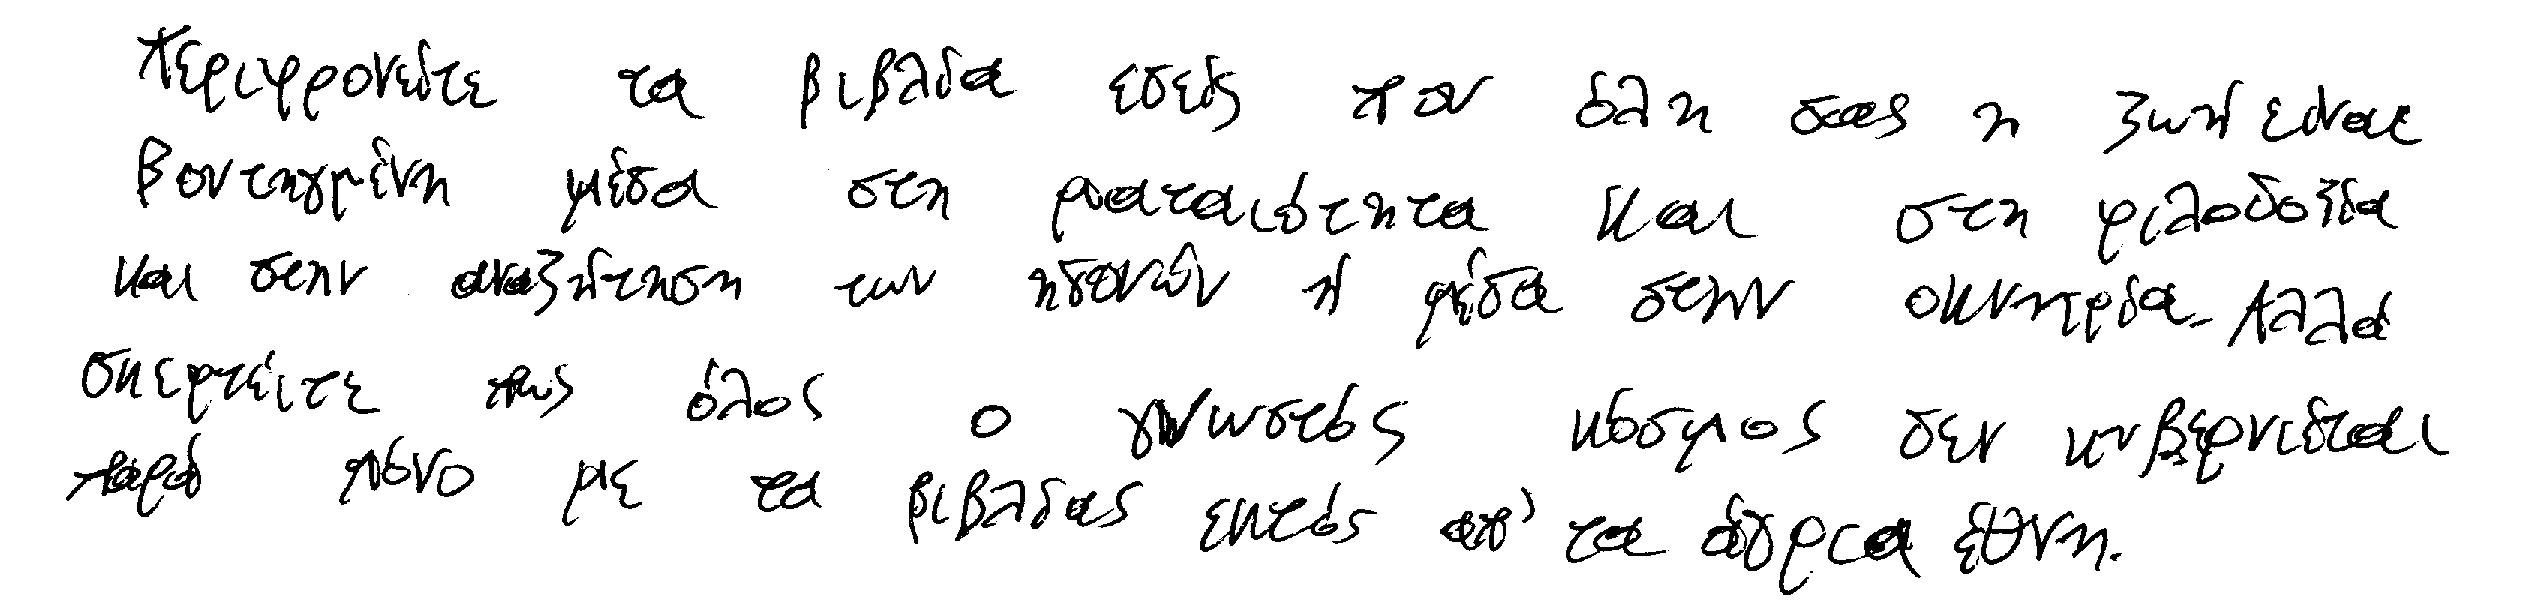 περιφρονείτε τα βιβλία εσείς που όλη σας η ζωή είναι
βουτηγμένη μέσα στη ματαιότητα και στη φιλοδοξία
και στην αναζήτηση των ηδονών ή μέσα στην οκνηρία. Αλλά
σκεφτείτε πως όλος ο γνωστός κόσμος δεν κυβερνιέται
παρά μόνο με τα βιβλίας εκτός απ' τα άγρια έθνη.